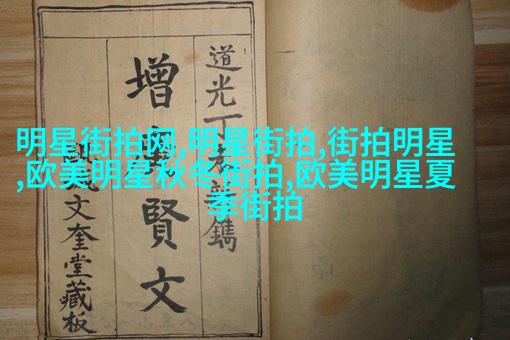 明星街拍网,明星街拍,街拍明星
,欧美明星秋冬街拍,欧美明星夏
季街拍
道光丁鐫
增賢文
文奎堂藏板